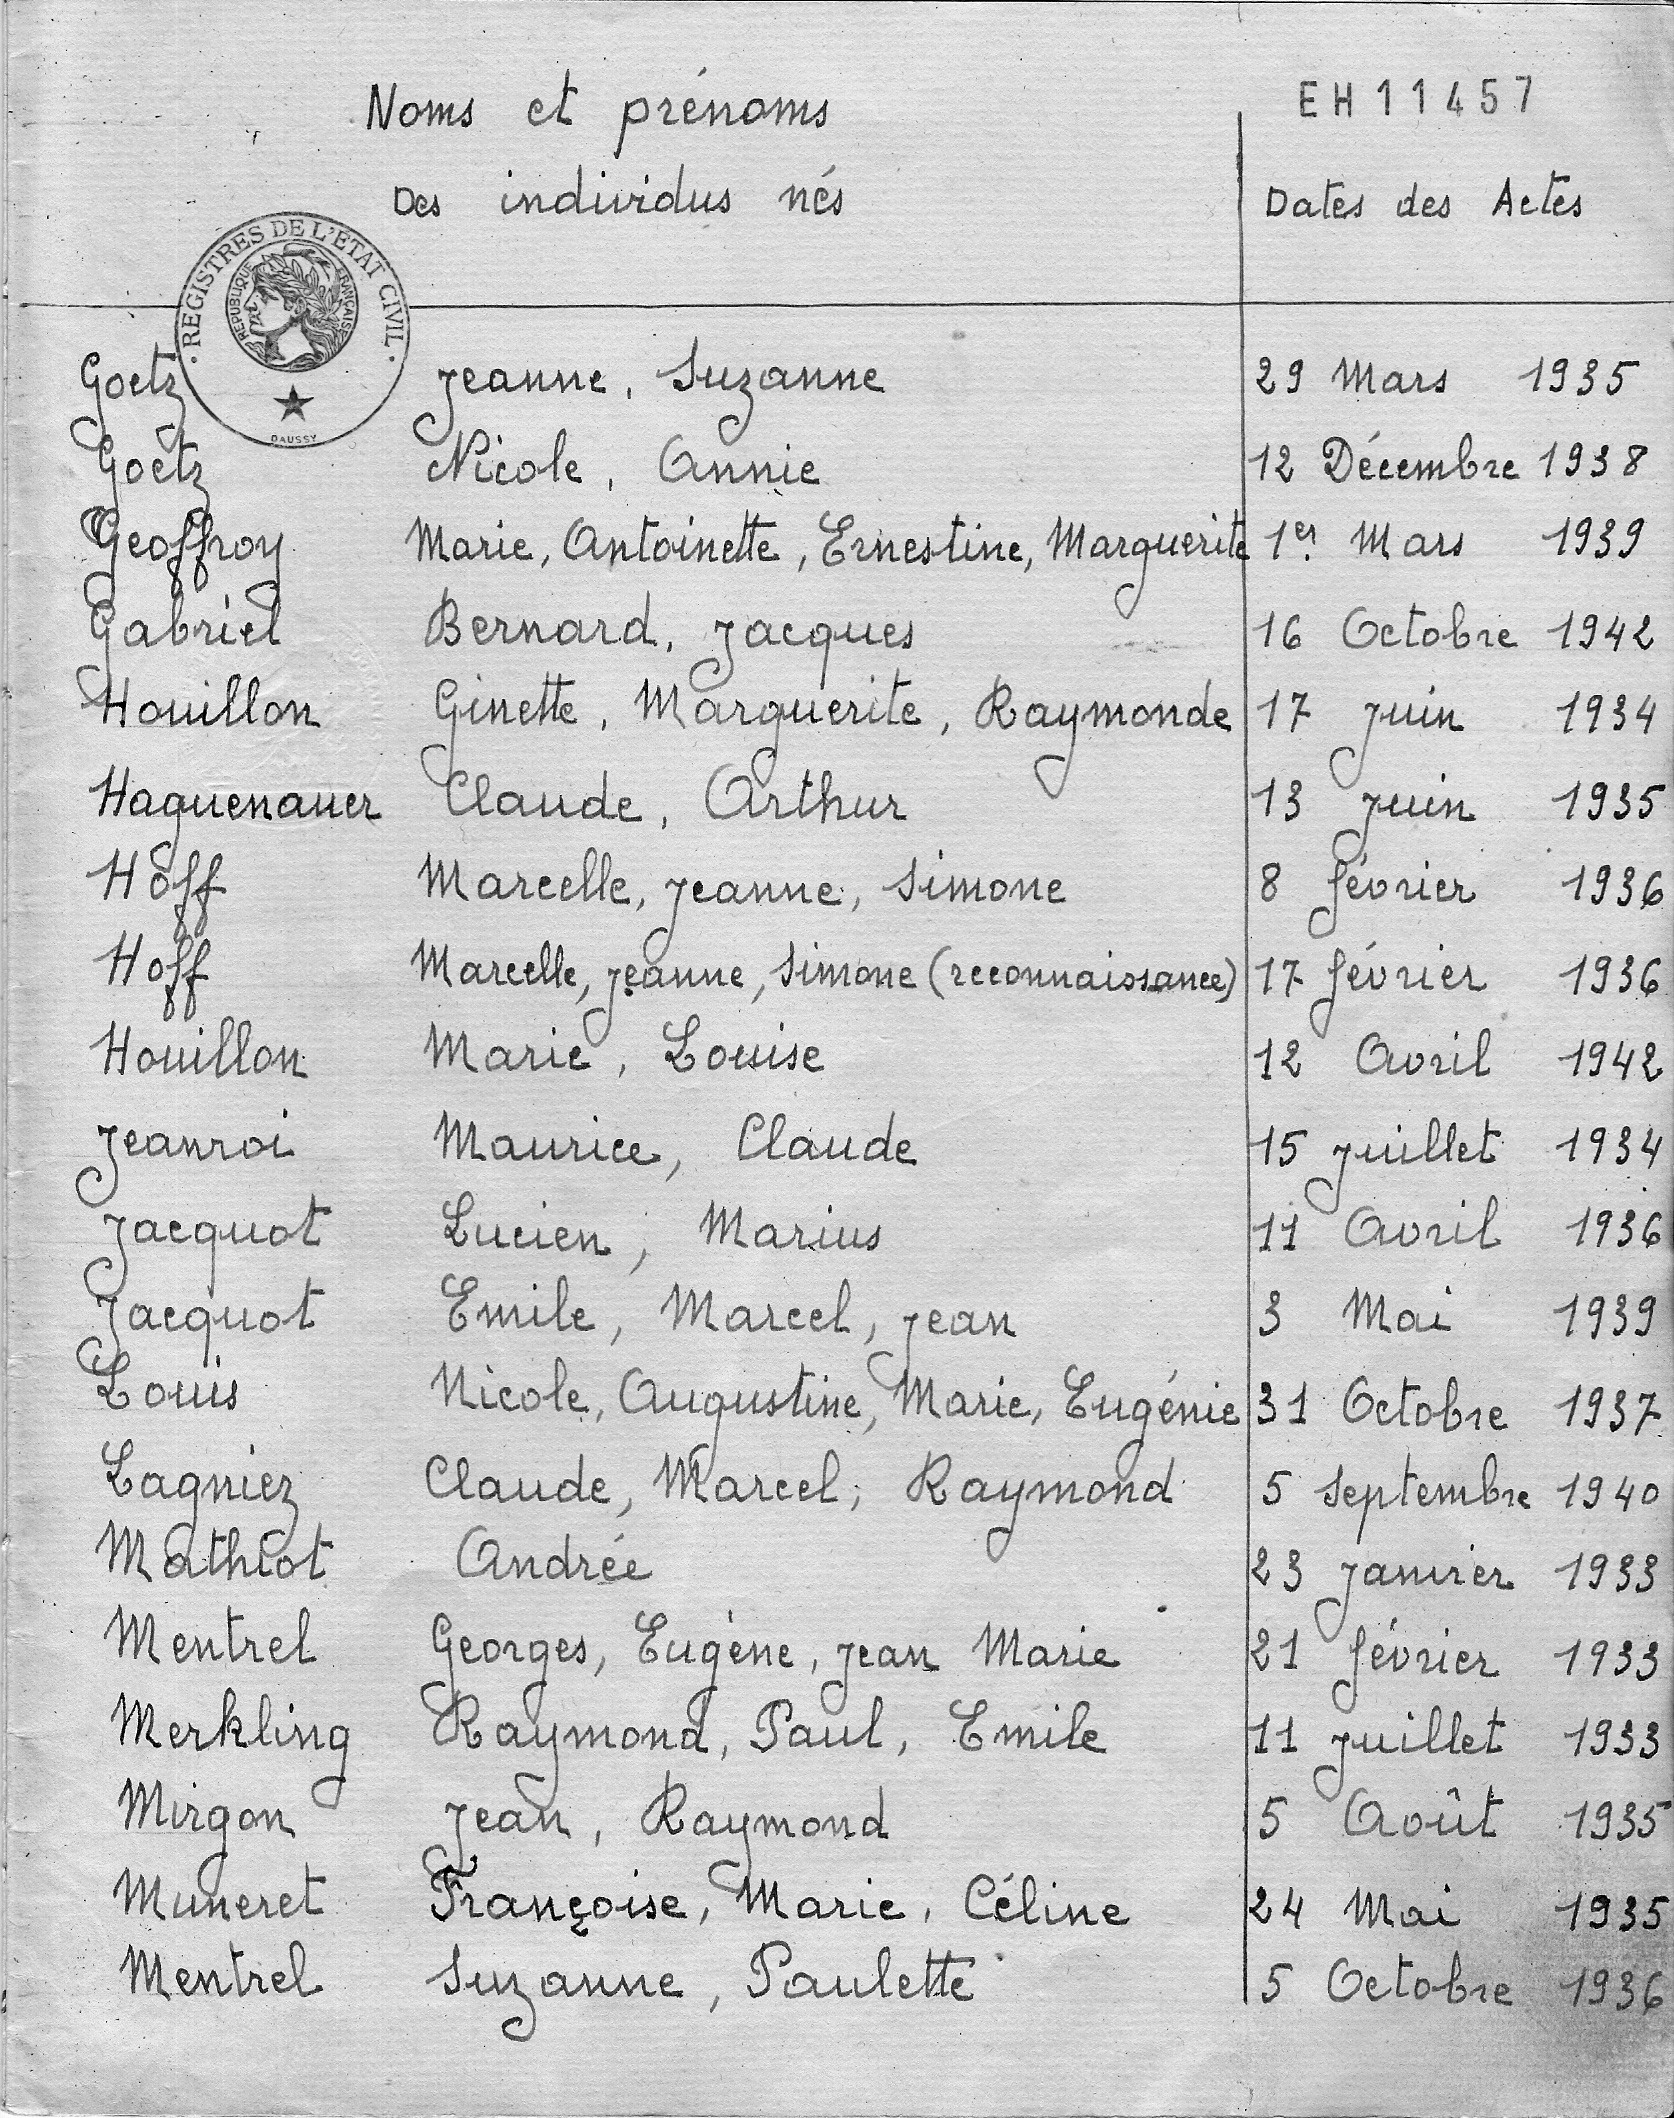 Noms et prénoms
EH11457
Des individus nés
Dates des Actes
REGISTRES DE L'ETAT CIVIL
REPUBLIQUE FRANÇAISE
DAUSSY
Goetz Jeanne, Suzanne 29 Mars 1935
Goetz Nicole, Annie 12 Décembre 1938
Geoffroy Marie, Antoinette, Ernestine, Marguerite 1er Mars 1939
Gabriel Bernard, Jacques 16 Octobre 1942
Houillon Ginette, Marguerite, Raymonde 17 Juin 1934
Haguenauer Claude, Arthur 13 Juin 1935
Hoff Marcelle, Jeanne, Simone 8 février 1936
Hoff Marcelle, Jeanne, Simone (reconnaissance) 17 février 1936
Houillon Marie, Louise 12 Avril 1942
Jeanroi Maurice, Claude 15 Juillet 1934
Jacquot Lucien, Marius 11 Avril 1936
Jacquot Emile, Marcel, Jean 3 Mai 1939
Louis Nicole, Augustine, Marie, Eugénie 31 Octobre 1937
Lagniez Claude, Marcel, Raymond 5 Septembre 1940
Mathiot Andrée 23 Janvier 1933
Mentrel Georges, Eugène, Jean Marie 21 février 1933
Merkling Raymond, Paul, Emile 11 Juillet 1933
Mirgon Jean, Raymond 5 Août 1935
Muneret Françoise, Marie, Céline 24 Mai 1935
Mentrel Suzanne, Paulette 5 Octobre 1936